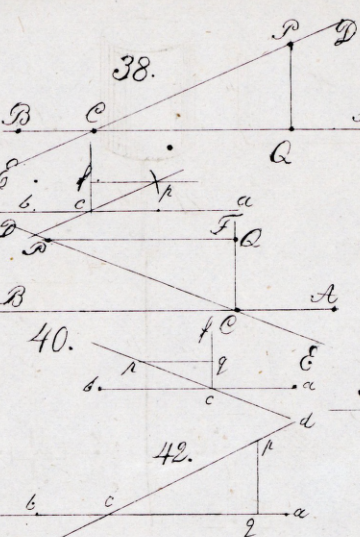 P D
38.
B C
Q
E
f p
b c a
D P F Q
B C A
40. f E
p q
b c a
d
42. p
b c a
q